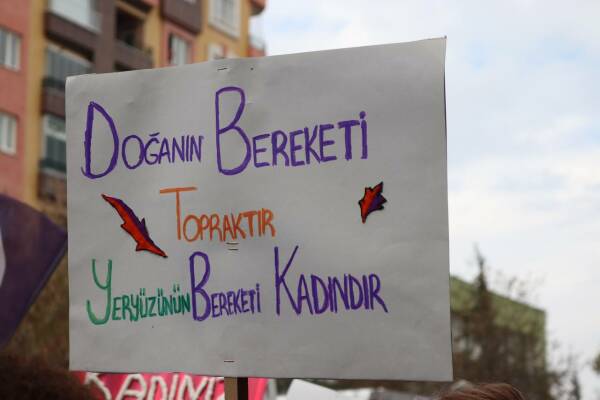 DOĞANIN BEREKETİ
TOPRAKTIR
YERYÜZÜNÜN BEREKETİ KADINDIR